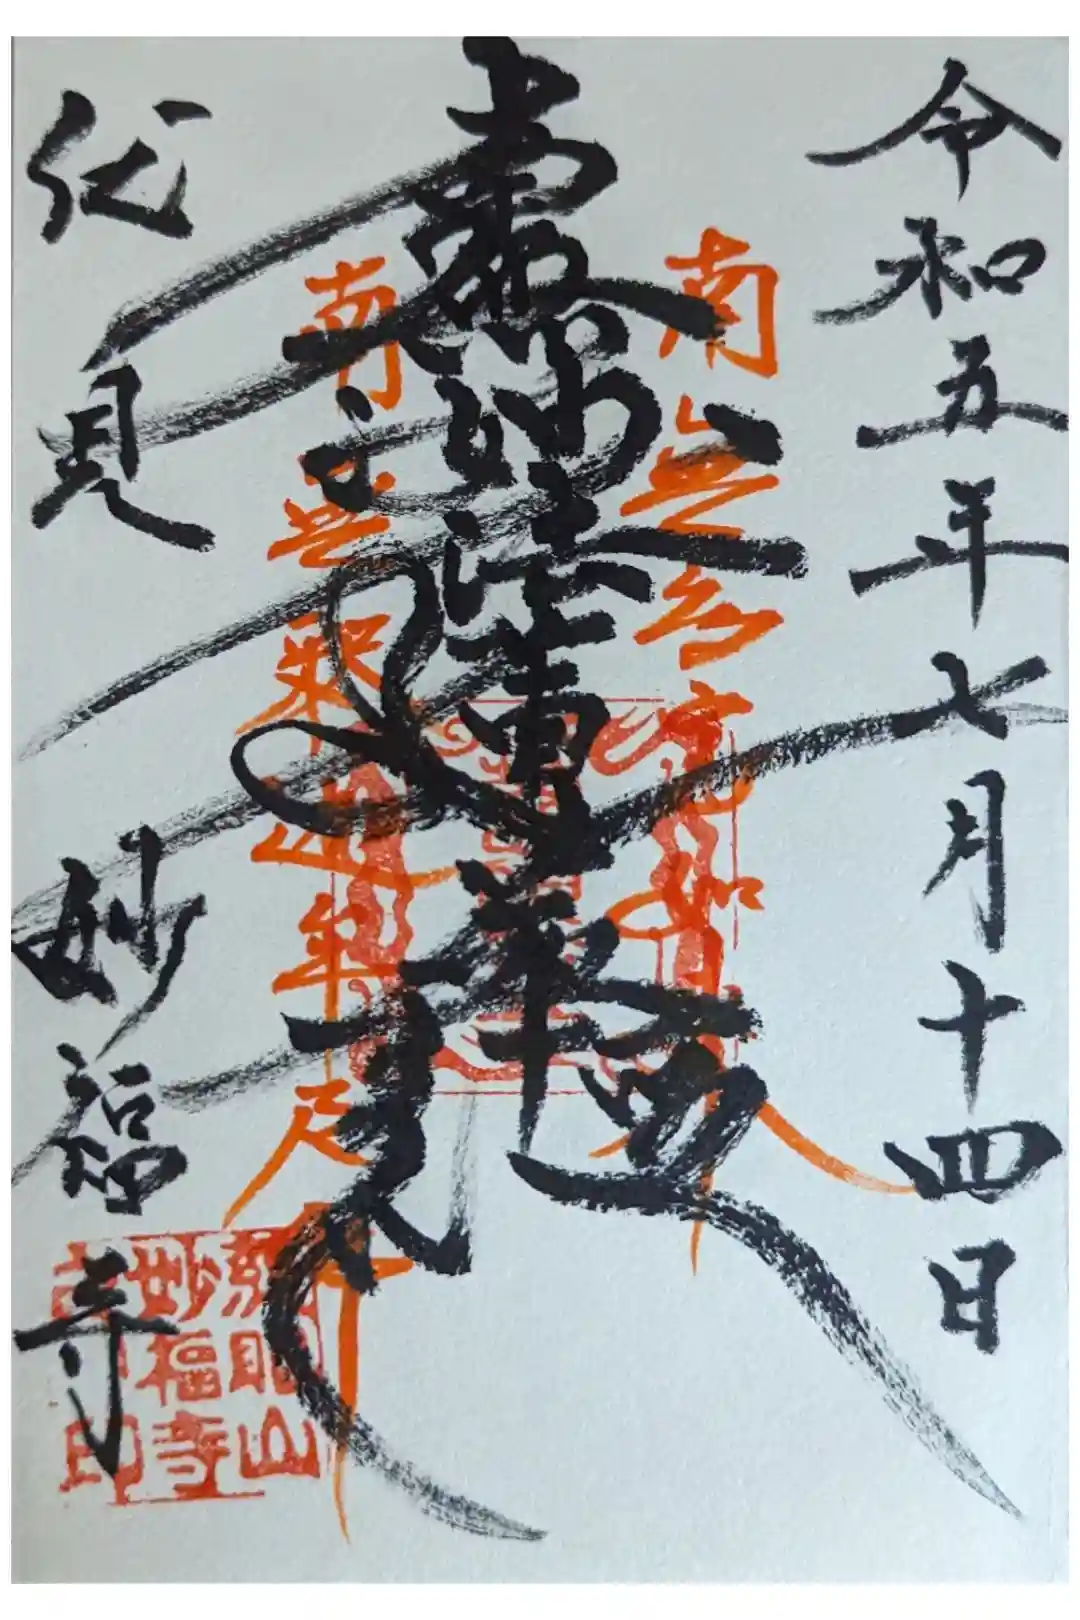 令和五年七月十四日
南無多宝如来
南無妙法蓮華経
南無釈迦牟尼
伏見 妙福寺
山
妙福寺
印